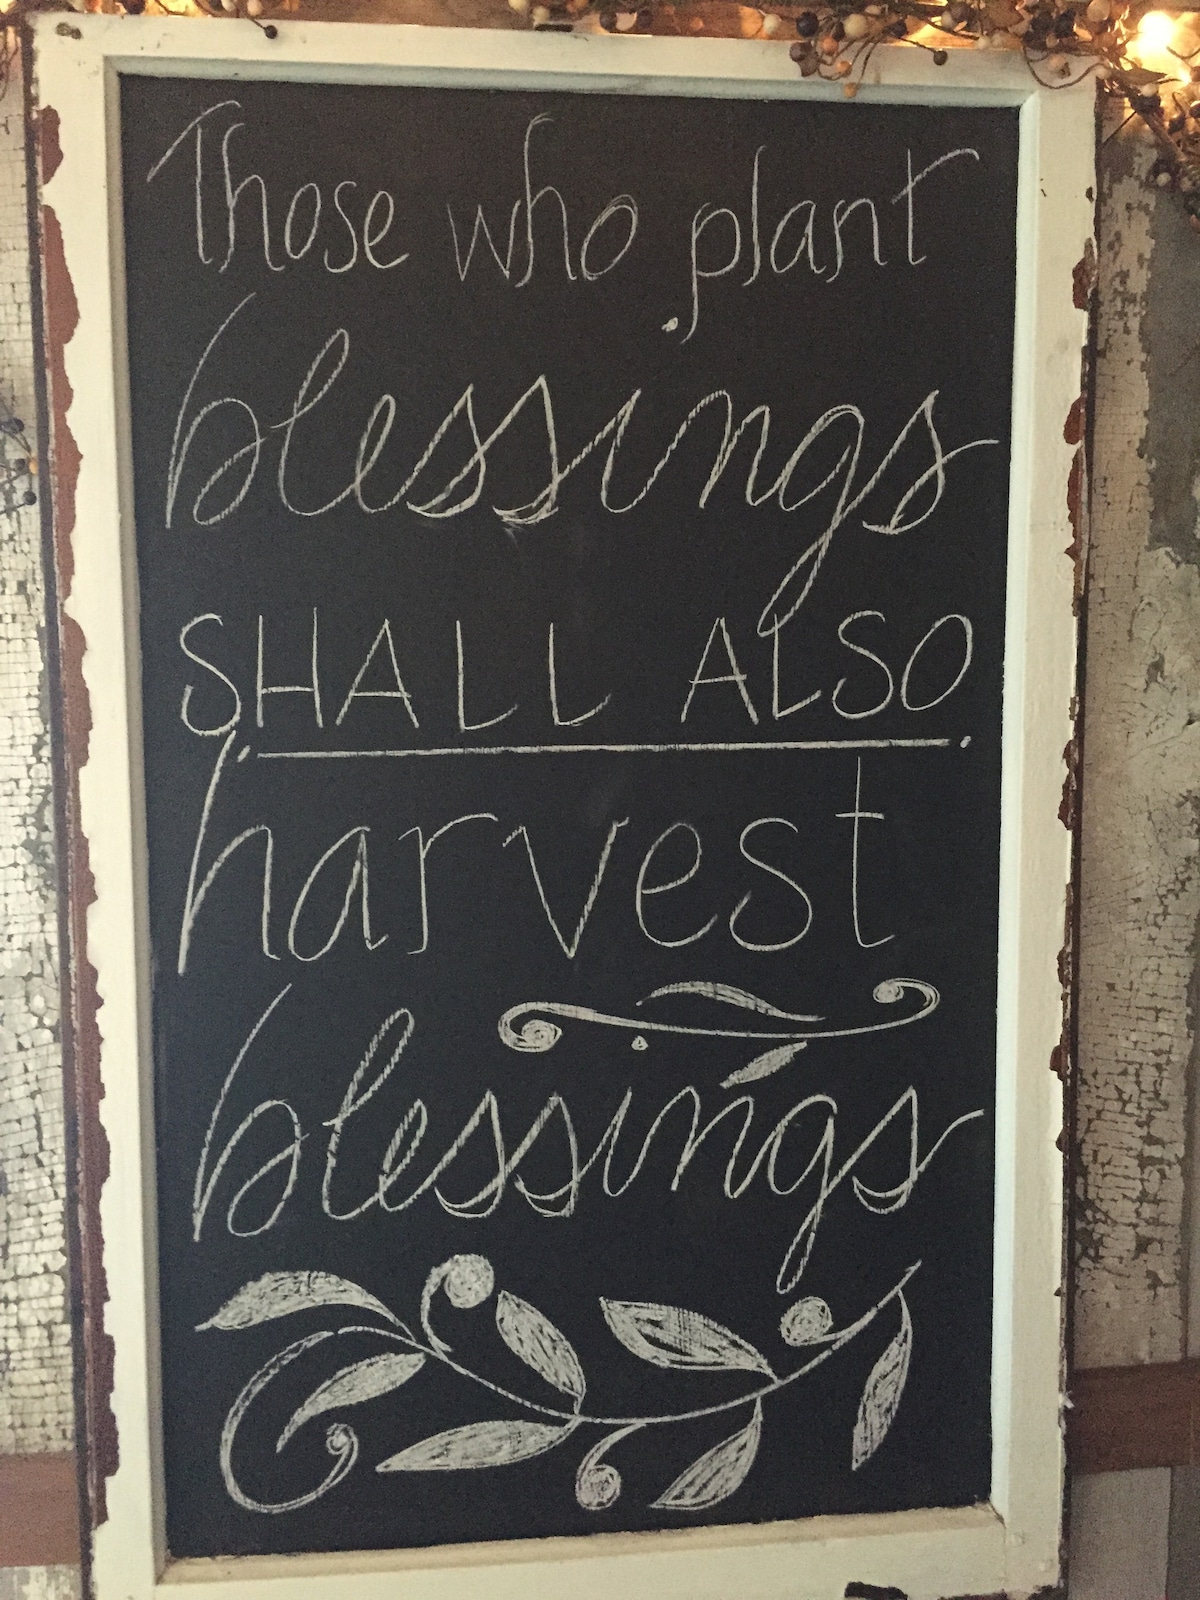 Those who plant
blessings
SHALL ALSO
harvest
blessings